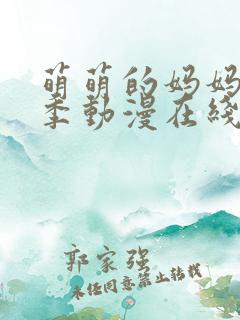 萌萌的妈妈
季動漫在綫
郭家强
未经同意禁止转载